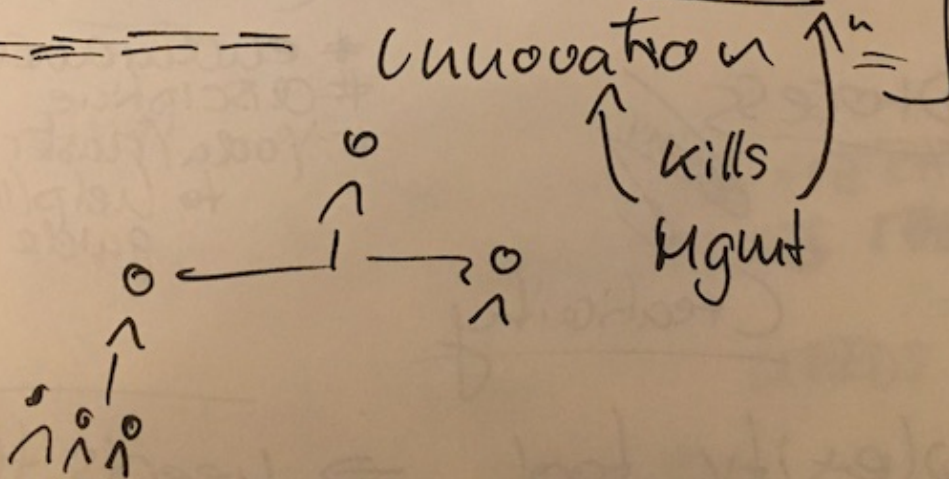 Innovation
kills
Mgmt